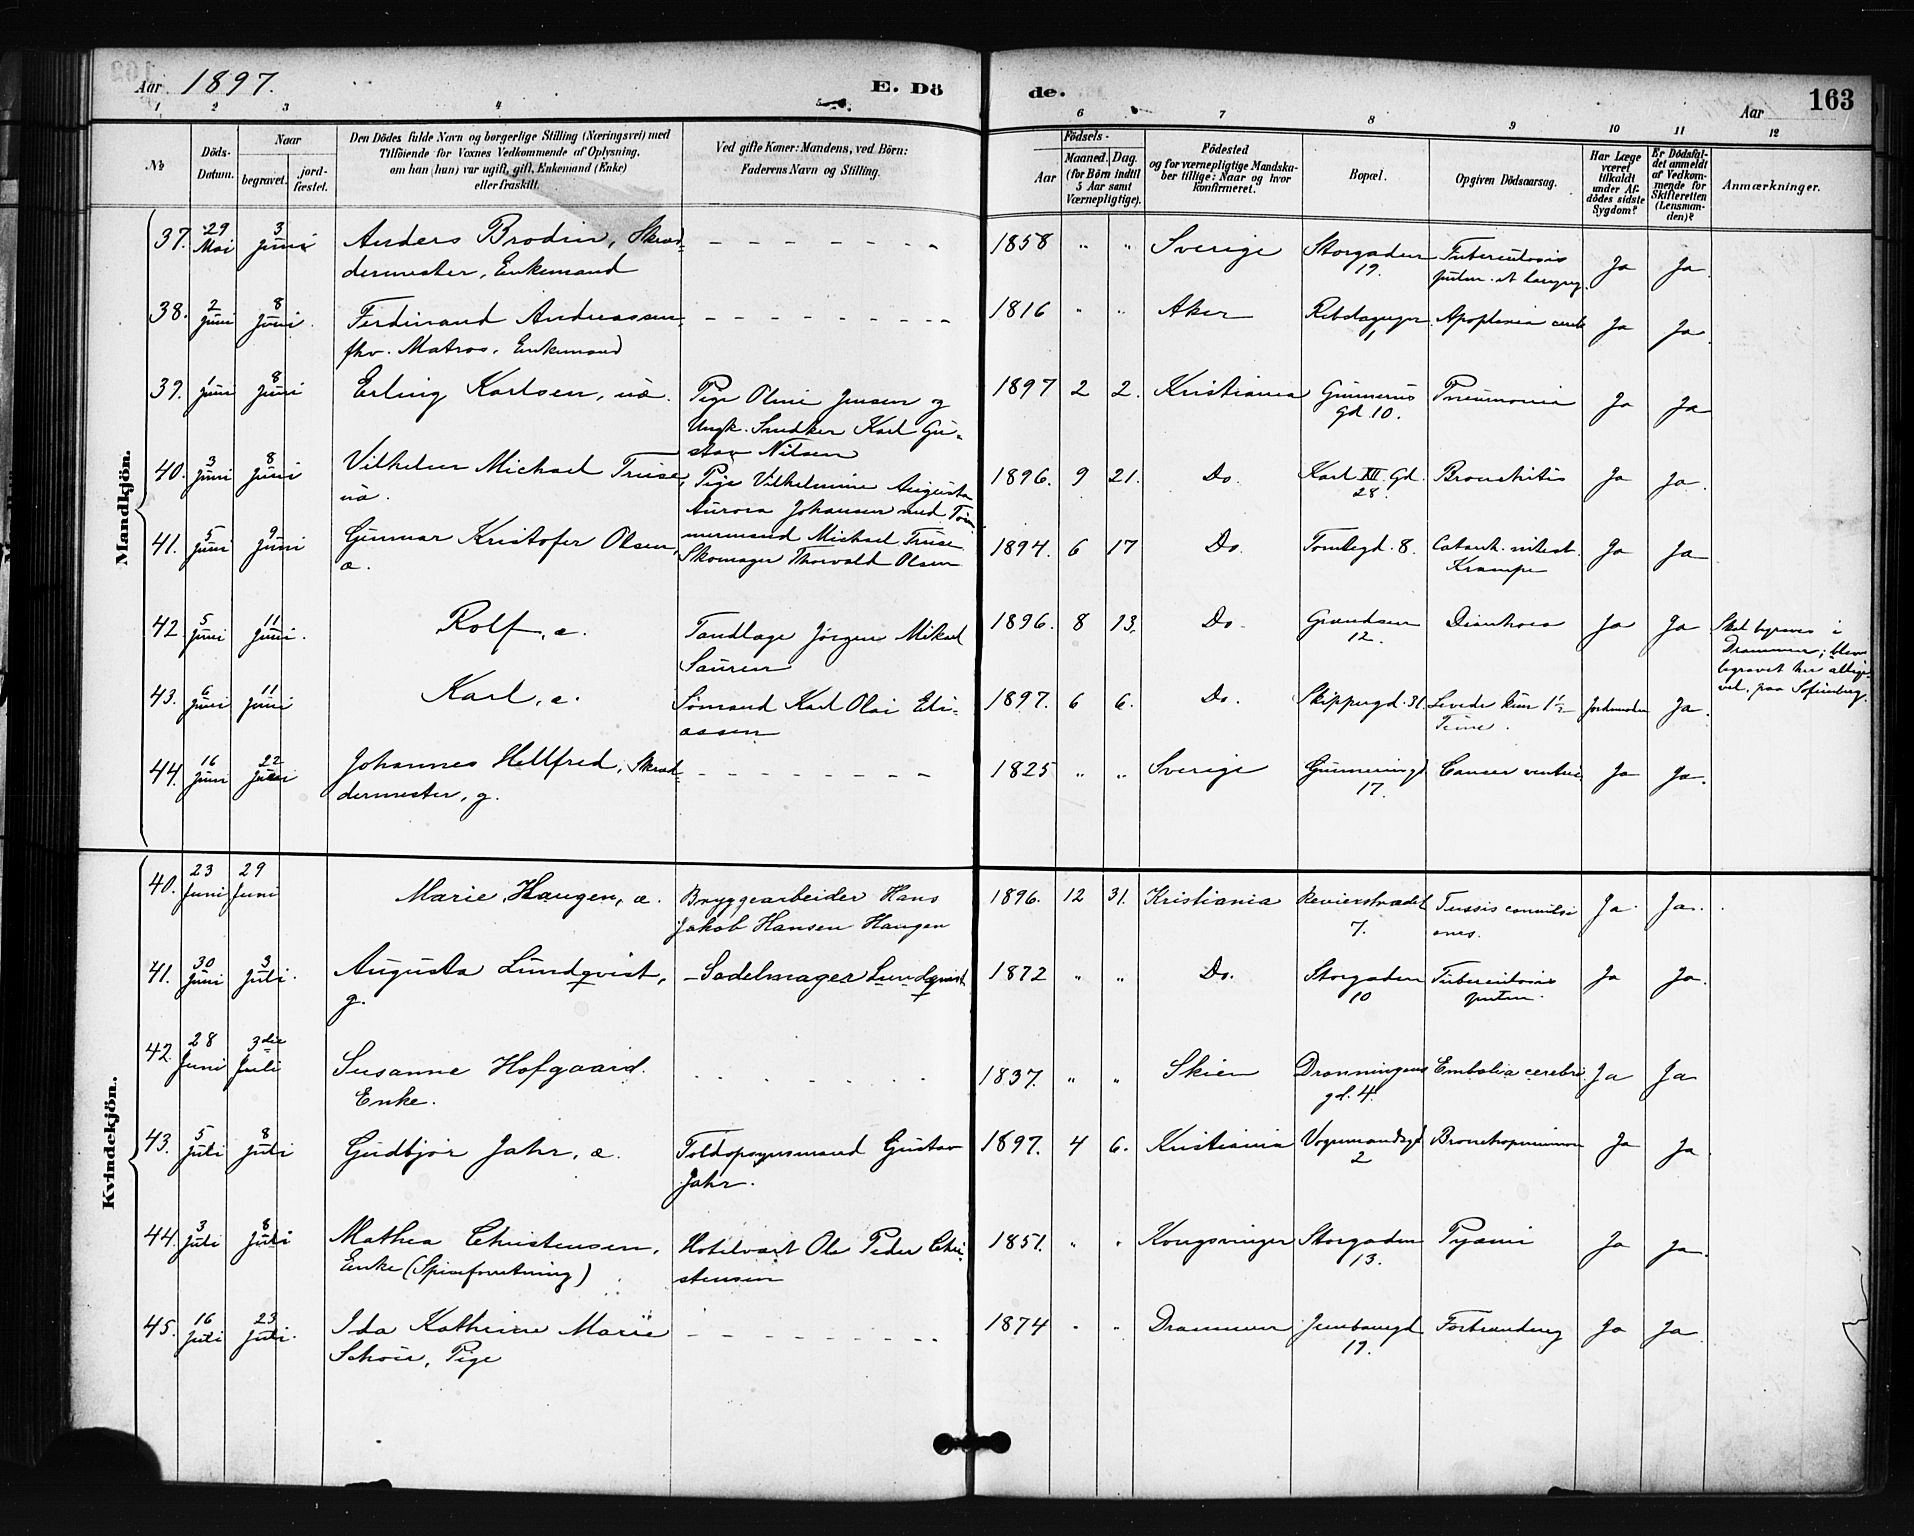 Aar 1897. E. Döde. Aar 163
1 2 3 4 5 6 7 8 9 10 11 12
No
Döds-Datum.
Naar begravet. jordfæstet.
Den Dödes fulde Navn og borgerlige Stilling (Næringsvei) med
Tilföiende for Voxnes Vedkommende af Oplysning,
om han (hun) var ugift, gift, Enkemand (Enke)
eller fraskilt.
Ved gifte Koner: Mandens, ved Börn:
Faderens Navn og Stilling.
Födsels-
Aar
Maaned. Dag.
(for Börn indtil
5 Aar samt
Værnepligtige).
Födested
og for værnepligtige Mandska-
ber tillige: Naar og hvor
konfirmeret.
Bopæl.
Opgiven Dödsaarsag.
Har Læge
været
tilkaldt
under Af-
dödes sidste
Sygdom?
Er Dödsfal-
det anmeldt
af Vedkom-
mende for
Skifteretten
(Lensman-
den)?
Anmærkninger.
Mandkjön.
37. 29 Mai 3 Juni Anders Brodin, Skræd- 1858 " " Sverige Storgaden 19. Tuberculosis Ja Ja.
dermester, Enkemand
38. 2 Juni 8 Juni Ferdinand Andreassen, 1816 " " Aker Apoplexia cereb. Ja Ja.
fhv. Matros, Enkemand
39. 1 Juni 8 Juni Erling Karlsen, uæ. Pige Oline Jensen og 1897 2 2. Kristiania Gunnerus gd. 10. Pneumonia Ja Ja
Ungk. Snedker Karl Gu-
stav Nilsen
40. 3 Juni 8 Juni Vilhelm Michael Truse, Pige Vilhelmine Augusta 1896. 9 21. Do. Karl XII Gd. 28. Bronchitis Ja Ja.
uæ. Aurora Johansen med Töm-
mermand Michael Truse
41. 5 Juni 9 Juni Gunnar Kristofer Olsen, Skomager Thorvald Olsen 1894. 6 17 Do. Tomtegd. 8. Catarrh. intest. Ja Ja
æ. Krampe
42 5 Juni 11 Juni. Rolf, æ. Tandlæge Jörgen Mikael 1896. 8 13. Do. Grændsen 12. Diarrhoea Ja Ja Skal begraves i
Sauren Drammen; blev
begravet her allige-
vel, paa Sofienberg.
43. 6 Juni 11 Juni Karl, æ. Sömand Karl Olai Eli- 1897. 6 6. Do. Skippergd. 31. Levede kun 1½ Jordmoder Ja.
assen Time.
44. 16 Juni 22 Juni Johannes Hellfred, Skræd- 1825 " " Sverige Gunnerusgd. 17. Cancer ventric. Ja Ja.
dermester, g.
Kvindekjön.
40. 23 Juni 29 Juni Marie Haugen, æ. Bryggearbeider Hans 1896. 12 31. Kristiania Revierstrædet 7. Tussis convulsi Ja. Ja.
Jakob Hansen Haugen ones.
41. 30 Juni 3 Juli. Augusta Lundqvist, Sadelmager Lundqvist 1872 " " Do. Storgaden 10 Tuberculosis Ja Ja.
g. pulm.
42. 28 Juni 3die Juli Susanne Hofgaard. 1837. " " Skien Dronningens gd. 4. Embolia cerebri. Ja Ja
Enke.
43. 5 Juli 8 Juli Gudbjör Jahr, æ. Toldopsynsmand Gustav 1897. 4 6. Kristiania Vognmandsgd 2 Bronchopneumon Ja Ja
Jahr.
44. 3 Juli 8 Juli Mathea Christensen, Hotelvært Ole Peder Chri- 1851. " " Kongsvinger Storgaden 13. Pyæmi Ja Ja.
Enke (Spiseforretning) stensen
45. 16 Juli 23 Juli. Ida Kathrine Marie 1874 " " Drammen Jernbanegd 19. Forbrænding Ja Ja.
Pige